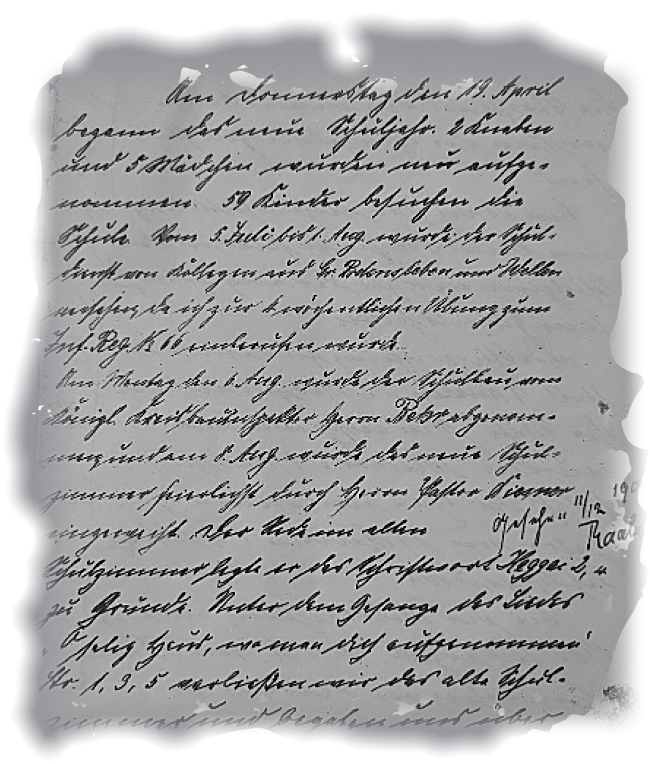 Am Donnerstag den 19. April
begann das neue Schuljahr. 2 Knaben
und 5 Mädchen wurden neu aufge-
nommen. 59 Kinder besuchen die
Schule. Vom 5. Juli bis 1. Aug. wurde der Schul-
dienst von Kollegen aus Gr. Rodensleben und Wellen
versehen, da ich zur 4 wöchentlichen Übung zum
Inf. Reg. № 66 einberufen wurde.
Am Montag den 6. Aug. wurde der Schulbau vom
Königl. Kreisbauinspektor Herrn abgenom-
men und am 8. Aug. wurde das neue Schul-
zimmer feierlichst durch Herrn Pastor
eingeweiht. Der Rede im alten
Gesehen 11/12
Schulzimmer legte er das Schriftwort Haggai 2,
zu Grunde. Unter dem Gesange des Liedes
"O selig Haus, wo man dich aufgenommen"
Str. 1, 3, 5 verließen wir das alte Schul-
zimmer und begaben uns über